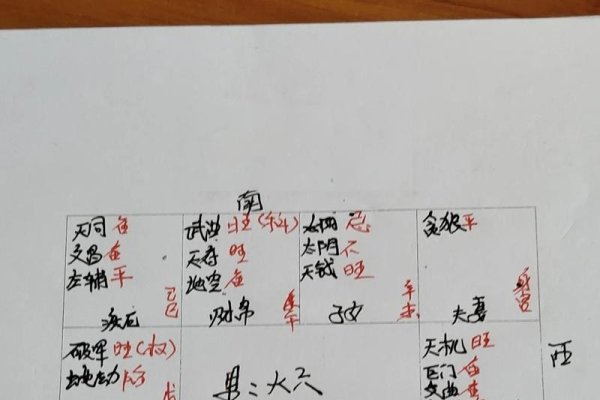 南
天同 庙
文昌 庙
左辅 平
己巳
疾厄
武曲 旺(科)
天府 旺
地空 庙
庚午
财帛
太阳
太阴 不
天钺 旺
辛未
子女
贪狼 平
身宫
夫妻
西
破军 旺(权)
地劫 陷
戊
男:火六
天机 旺
巨门 庙
文曲